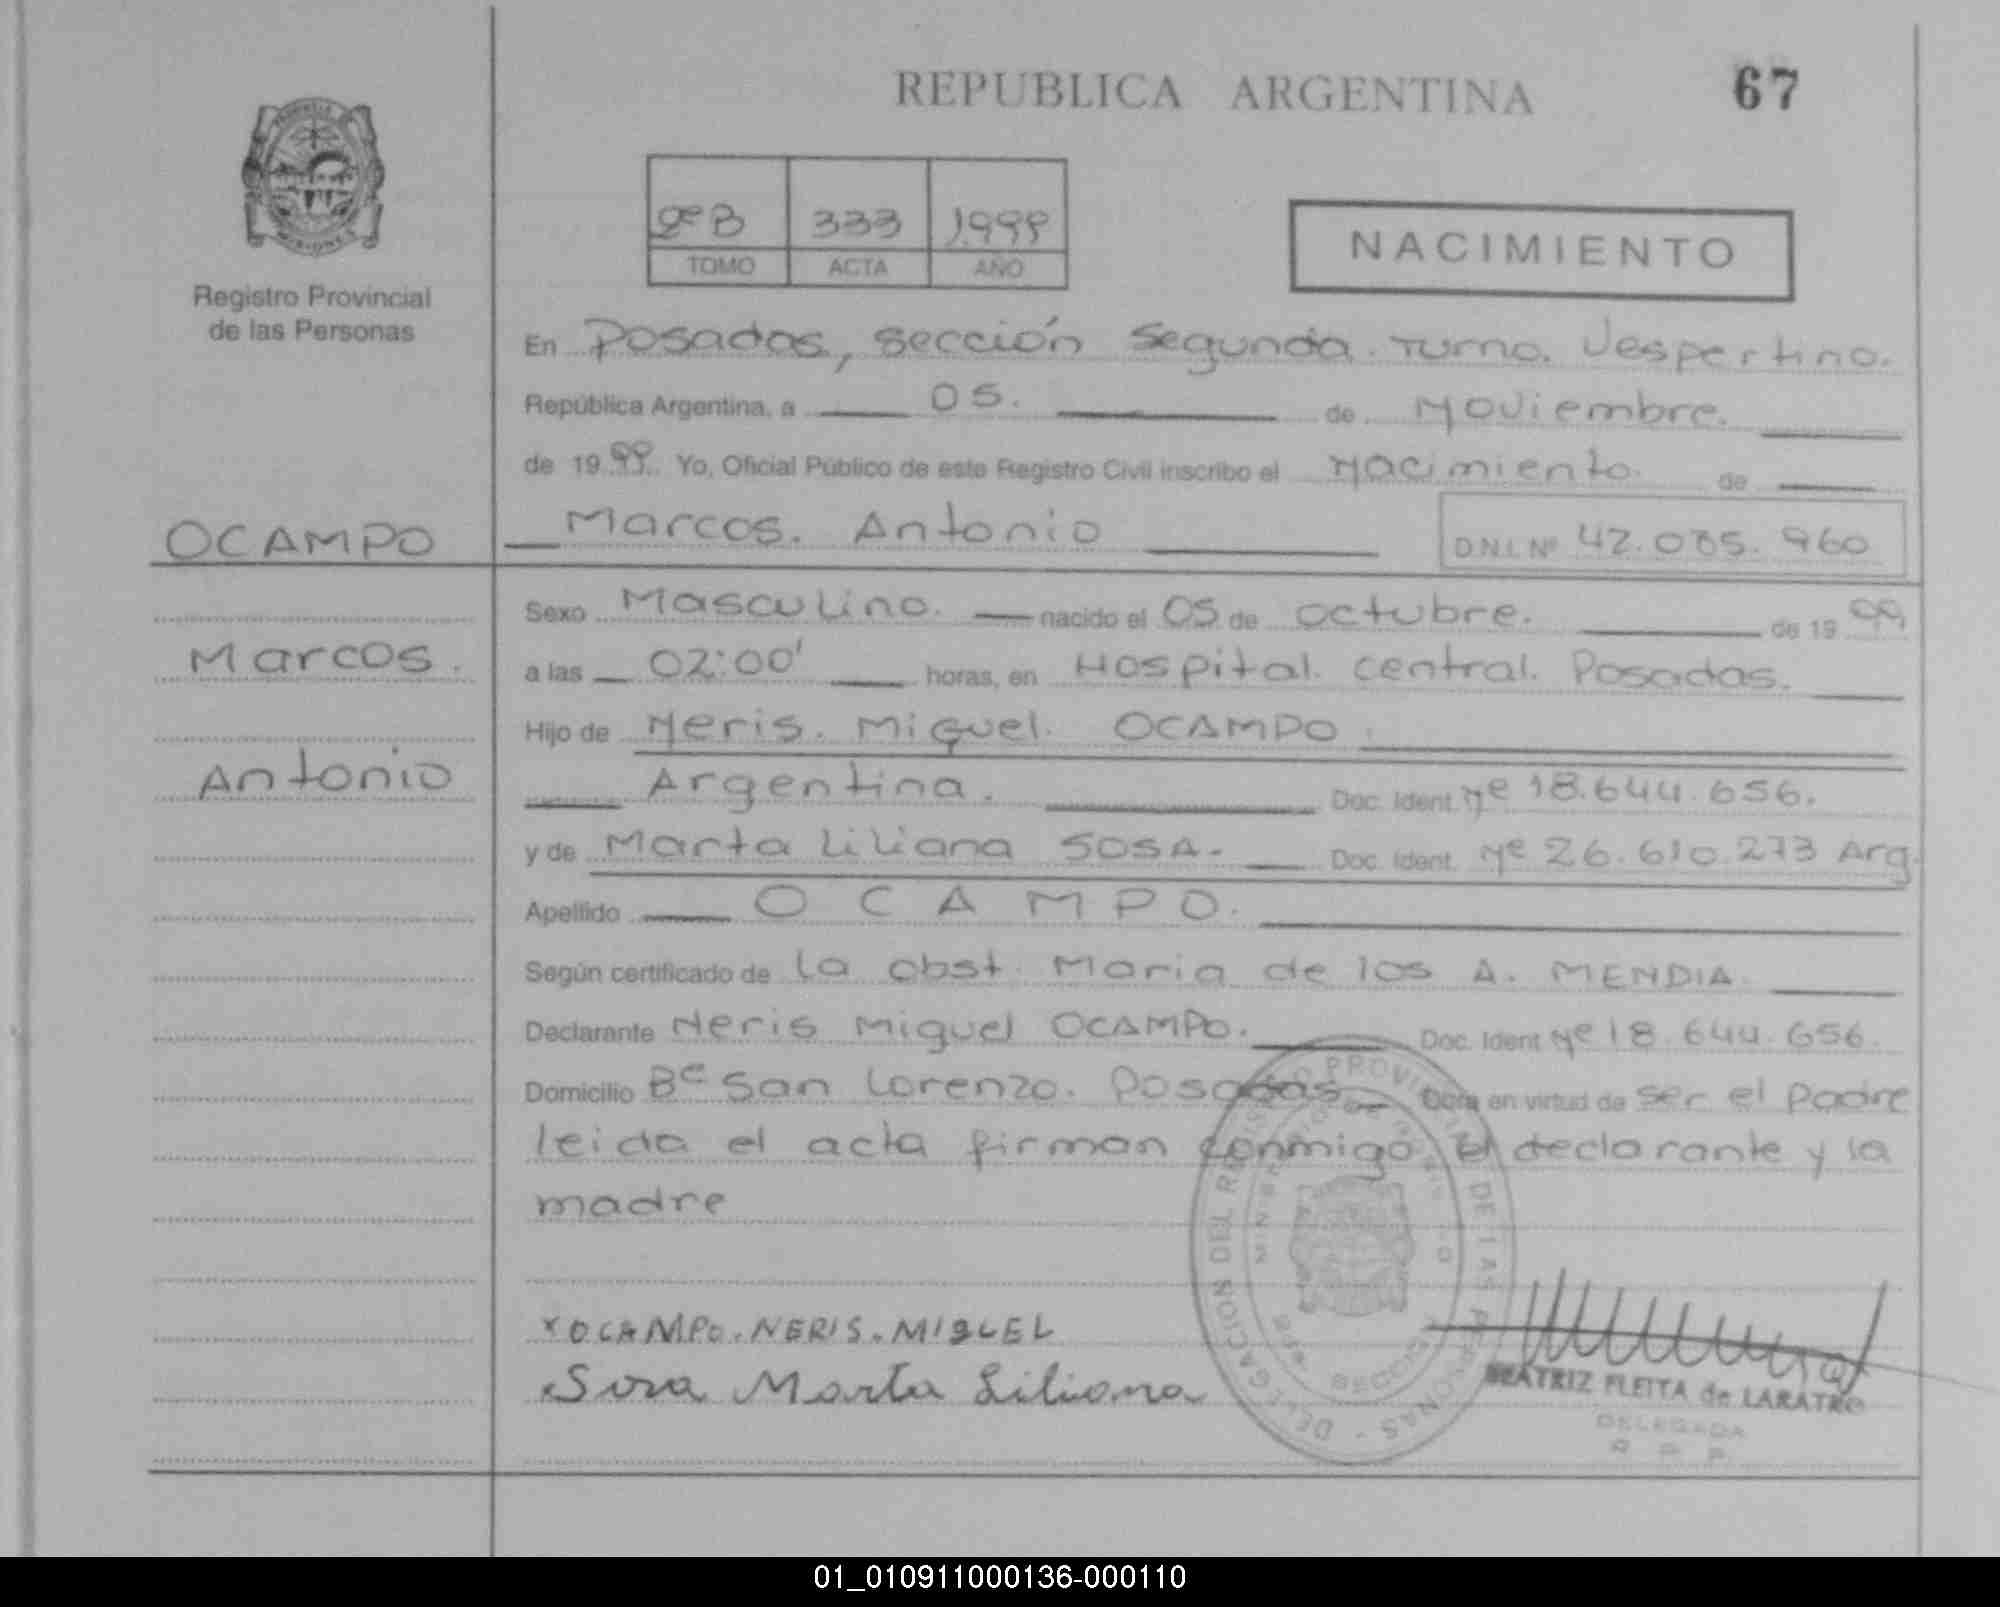 REPUBLICA ARGENTINA
67
2º B 333 1999
TOMO ACTA AÑO
NACIMIENTO
Registro Provincial
de las Personas
En Posadas, sección Segunda. Turno. Vespertino.
República Argentina, a 05. de Noviembre.
de 19 99 Yo, Oficial Público de este Registro Civil inscribo el Nacimiento. de
OCAMPO
Marcos. Antonio
D.N.I. Nº 42.085.960
Marcos.
Antonio
Sexo Masculino. nacido el 05 de octubre. de 19 99
a las 02:00' horas, en Hospital. central. Posadas.
Hijo de Neris. Miguel. OCAMPO
Argentina. Doc. Ident. Nº 18.644.656.
y de Marta Liliana SOSA. Doc. Ident. Nº 26.610.273 Arg.
Apellido OCAMPO.
Según certificado de la obst. Maria de los A. MENDIA.
Declarante Neris Miguel OCAMPO. Doc. Ident Nº 18.644.656.
Domicilio Bº San Lorenzo. Posadas Obra en virtud de ser el padre
leida el acta firman conmigo el declarante y la
madre
x OCAMPO. NERIS. MIGUEL
Sosa Marta Liliana
DELEGACION DEL REGISTRO PROVINCIAL DE LAS PERSONAS
BEATRIZ FLEITA de LARATRO
DELEGADA
R. P. P.
01_010911000136-000110